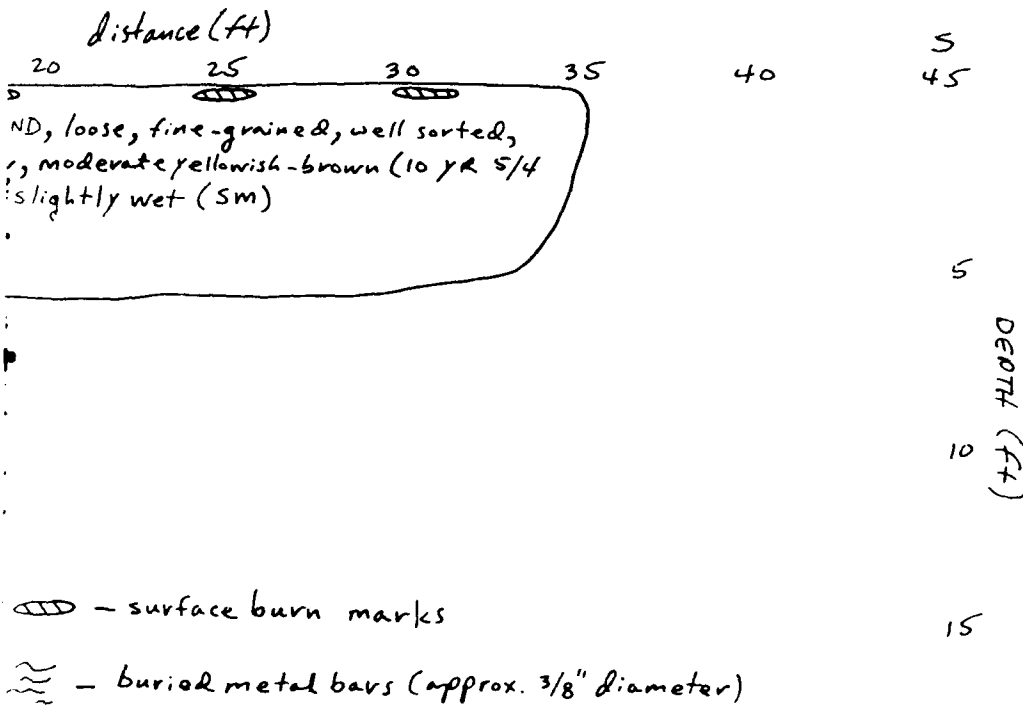 distance (ft)
S
20 25 30 35 40 45
ND, loose, fine-grained, well sorted,
, moderate yellowish-brown (10 YR 5/4
slightly wet (Sm)
5
DEPTH (ft)
10
— surface burn marks
15
— buried metal bars (approx. 3/8" diameter)